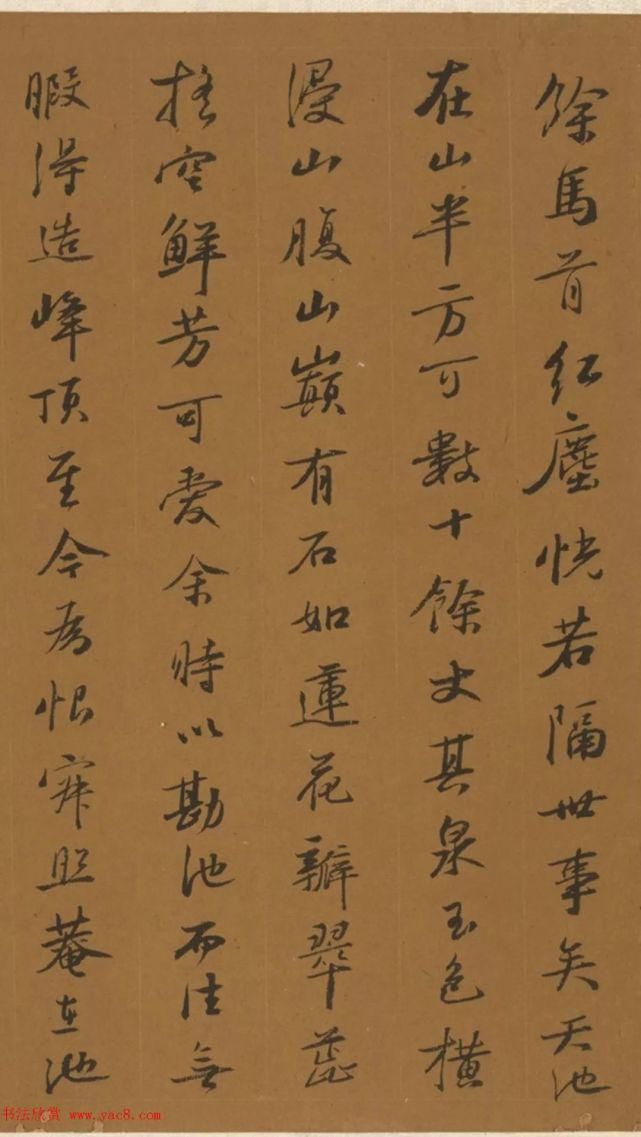 餘馬首紅塵恍若隔世事矣天池
在山半方可數十餘丈其泉玉色橫
浸山腹山巔有石如蓮花瓣翠蕊
摇空鮮芳可愛余時以勘池而往無
暇得造峰頂至今為恨寂照菴在池
书法欣赏 www.yac8.com